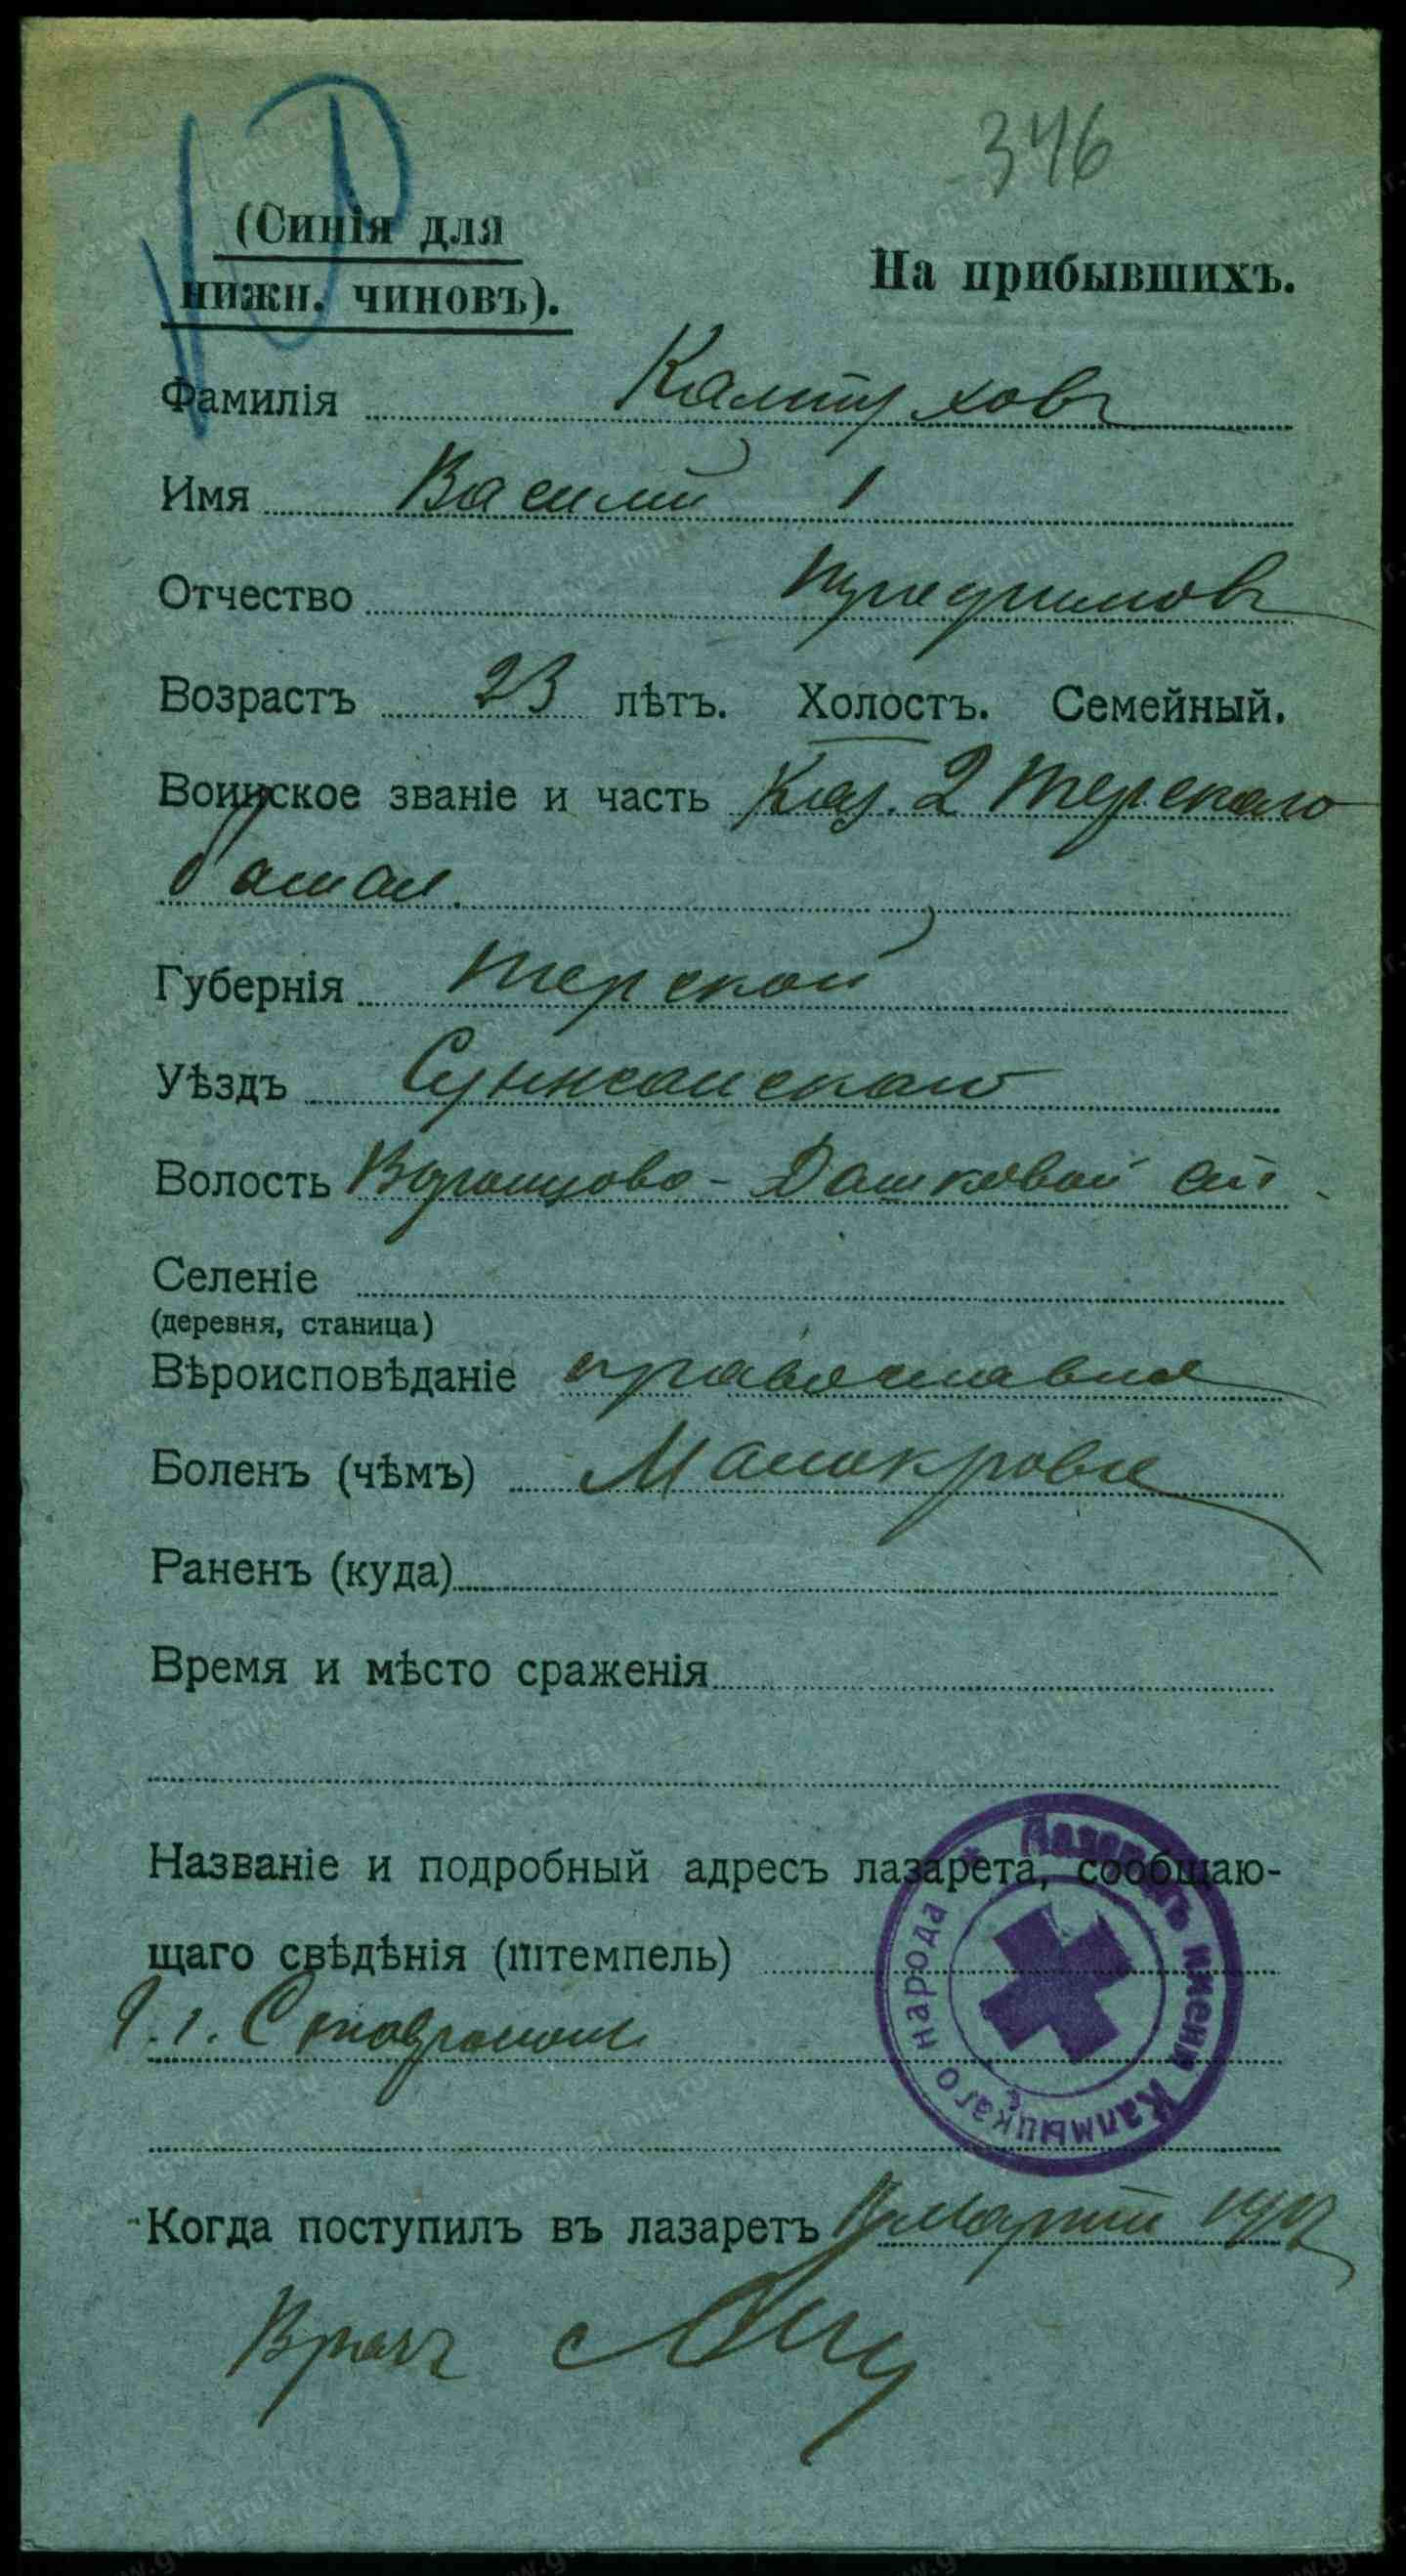 346
(Синія для
нижн. чиновъ).
На прибывшихъ.
Фамилія
Имя Василій
Отчество
Возрастъ 23 лѣтъ. Холостъ. Семейный.
Воинское званіе и часть Каз. 2 Терскаго
батал.
Губернія Терской
Уѣздъ Сунженскаго
Волость Воронцово-Дашковой ст
Селеніе
(деревня, станица)
Вѣроисповѣданіе православное
Боленъ (чѣмъ) Малокровіе
Раненъ (куда)
Время и мѣсто сраженія
Названіе и подробный адресъ лазарета, сообщаю-
щаго свѣдѣнія (штемпель)
Лазаретъ имени Калмыцкаго народа
г. Ставрополь
Когда поступилъ въ лазаретъ марта 1917
Врачъ